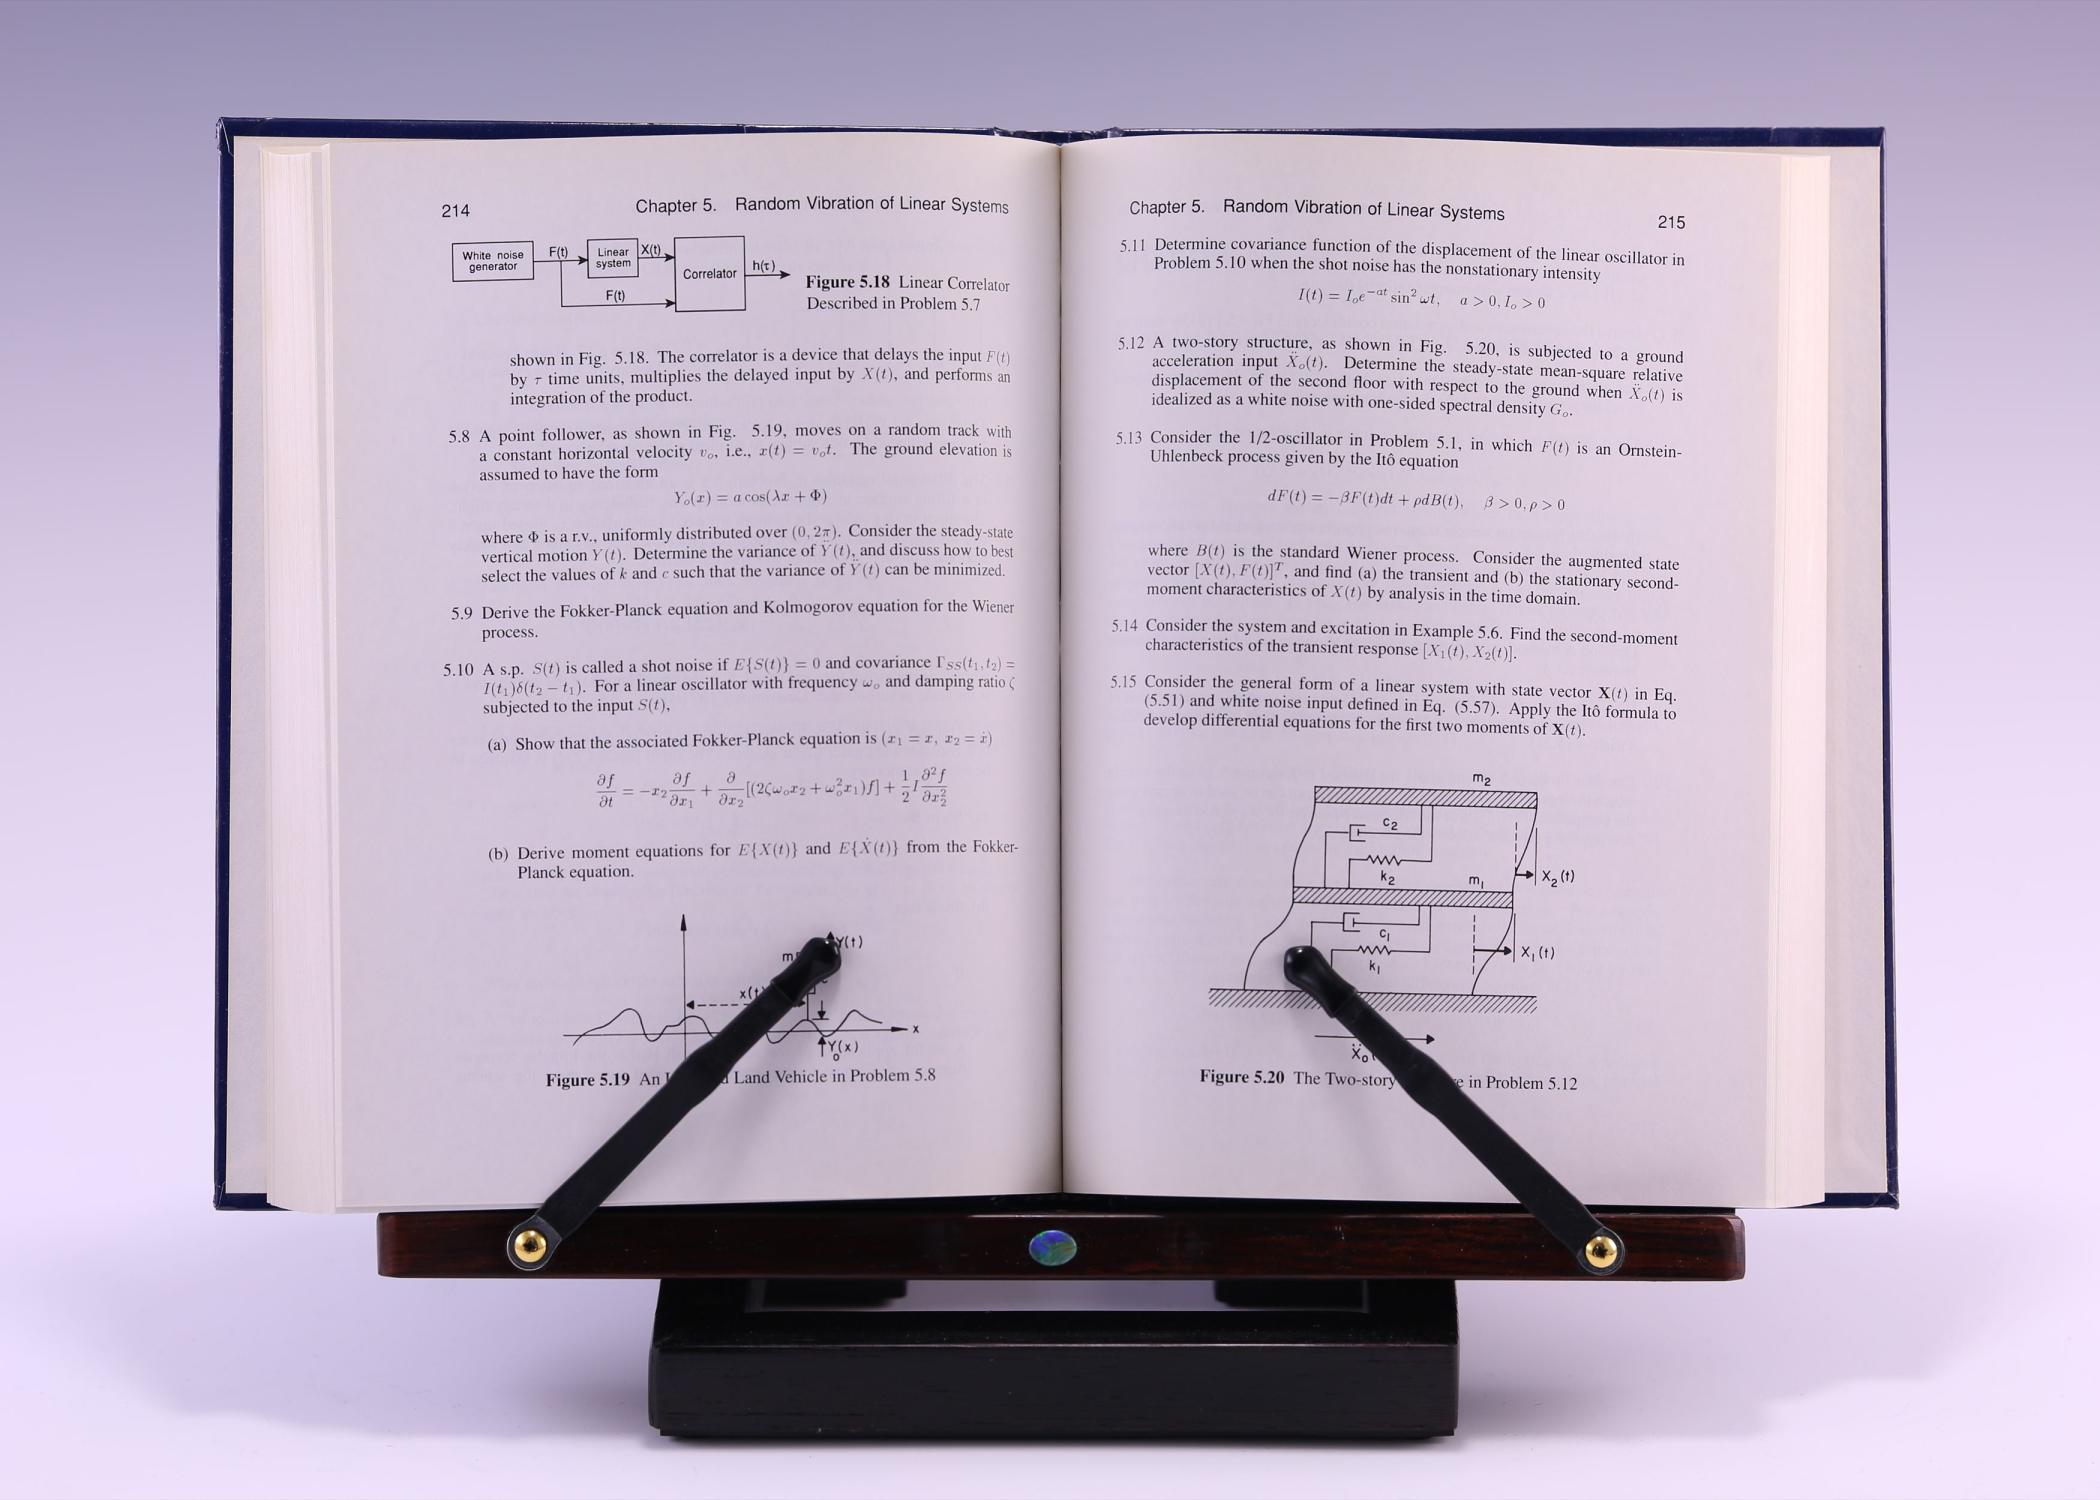 214
Chapter 5. Random Vibration of Linear Systems
White noise
generator
F(t)
Linear
system
X(t)
F(t)
Correlator
h(τ)
Figure 5.18 Linear Correlator
Described in Problem 5.7
shown in Fig. 5.18. The correlator is a device that delays the input F(t)
by τ time units, multiplies the delayed input by X(t), and performs an
integration of the product.
5.8 A point follower, as shown in Fig. 5.19, moves on a random track with
a constant horizontal velocity v_o, i.e., x(t) = v_o t. The ground elevation is
assumed to have the form
Y_o(x) = a cos(λx + Φ)
where Φ is a r.v., uniformly distributed over (0, 2π). Consider the steady-state
vertical motion Y(t). Determine the variance of Ÿ(t), and discuss how to best
select the values of k and c such that the variance of Ÿ(t) can be minimized.
5.9 Derive the Fokker-Planck equation and Kolmogorov equation for the Wiener
process.
5.10 A s.p. S(t) is called a shot noise if E{S(t)} = 0 and covariance Γ_SS(t₁, t₂) =
I(t₁)δ(t₂ − t₁). For a linear oscillator with frequency ω_o and damping ratio ζ
subjected to the input S(t),
(a) Show that the associated Fokker-Planck equation is (x₁ = x, x₂ = ẋ)
∂f/∂t = −x₂ ∂f/∂x₁ + ∂/∂x₂ [(2ζω_o x₂ + ω_o² x₁)f] + 1/2 I ∂²f/∂x₂²
(b) Derive moment equations for E{X(t)} and E{Ẋ(t)} from the Fokker-
Planck equation.
Y(t)
m
c
x(t)
x
Y_o(x)
Figure 5.19 An Land Vehicle in Problem 5.8
Chapter 5. Random Vibration of Linear Systems
215
5.11 Determine covariance function of the displacement of the linear oscillator in
Problem 5.10 when the shot noise has the nonstationary intensity
I(t) = I_o e^{−at} sin² ωt, a > 0, I_o > 0
5.12 A two-story structure, as shown in Fig. 5.20, is subjected to a ground
acceleration input Ẍ_o(t). Determine the steady-state mean-square relative
displacement of the second floor with respect to the ground when Ẍ_o(t) is
idealized as a white noise with one-sided spectral density G_o.
5.13 Consider the 1/2-oscillator in Problem 5.1, in which F(t) is an Ornstein-
Uhlenbeck process given by the Itô equation
dF(t) = −βF(t)dt + ρdB(t), β > 0, ρ > 0
where B(t) is the standard Wiener process. Consider the augmented state
vector [X(t), F(t)]ᵀ, and find (a) the transient and (b) the stationary second-
moment characteristics of X(t) by analysis in the time domain.
5.14 Consider the system and excitation in Example 5.6. Find the second-moment
characteristics of the transient response [X₁(t), X₂(t)].
5.15 Consider the general form of a linear system with state vector X(t) in Eq.
(5.51) and white noise input defined in Eq. (5.57). Apply the Itô formula to
develop differential equations for the first two moments of X(t).
m₂
c₂
k₂
X₂(t)
m₁
c₁
k₁
X₁(t)
Ẍ₀
Figure 5.20 The Two-story in Problem 5.12